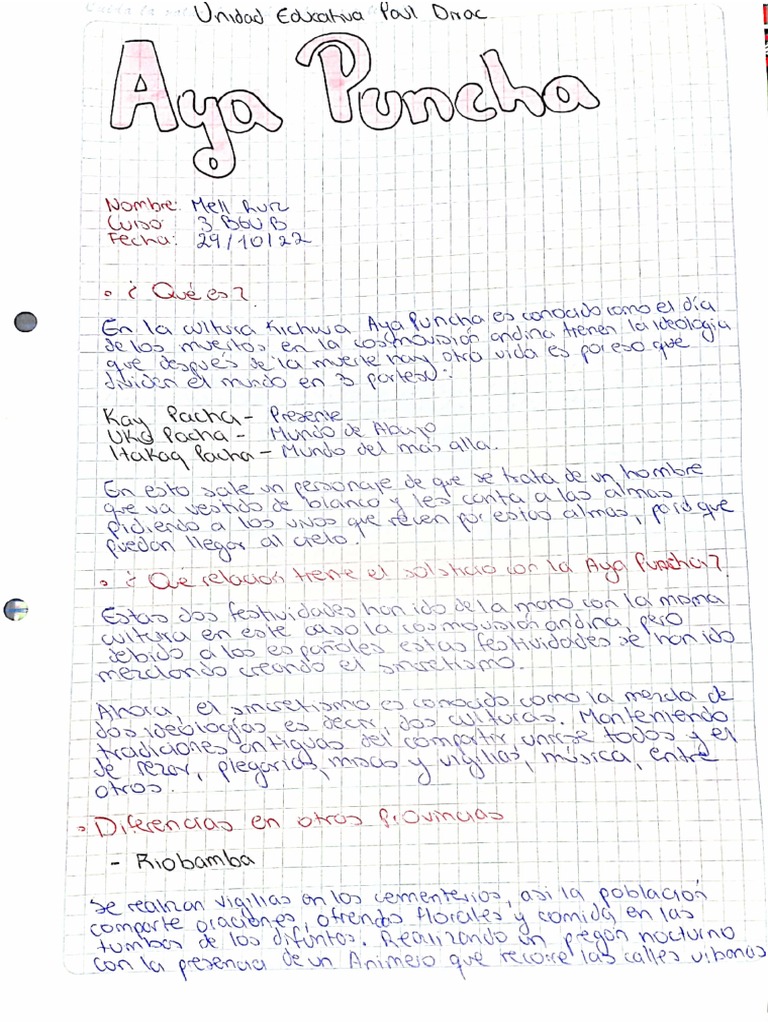 Unidad Educativa Paul Dirac
Aya Puncha
Nombre: Mell Ruiz
Curso: 3 BGU B
Fecha: 29/10/22
• ¿Qué es?
En la cultura Kichwa Aya Puncha es conocido como el día
de los muertos, en la cosmovisión andina tienen la ideologia
que después de la muerte hay otra vida es por eso que
dividen el mundo en 3 partes:
Kay Pacha - Presente
Uku Pacha - Mundo de Abajo
Hakaq Pacha - Mundo del más alla.
En esto sale un personaje de que se trata de un hombre
que va vestido de blanco y les canta a las almas
pidiendo a los vivos que recen por estas almas, para que
puedan llegar al cielo.
• ¿Qué relación tiene el solsticio con la Aya Puncha?
Estas dos festividades han ido de la mano con la misma
cultura en este caso la cosmovisión andina, pero
debido a los españoles estas festividades se han ido
mezclando creando el sincretismo.
Ahora, el sincretismo es conocido como la mezcla de
dos ideologías es decir, dos culturas. Manteniendo
tradiciones antiguas del compartir, unirse todos y el
de rezar, plegarias, misas y vigilias, música, entre
otros.
• Diferencias en otras Provincias
- Riobamba
Se realizan vigilias en los cementerios, asi la población
comparte oraciones, ofrendas florales y comida en las
tumbas de los difuntos. Realizando un pregón nocturno
con la presencia de un Animero que recorre las calles urbanas